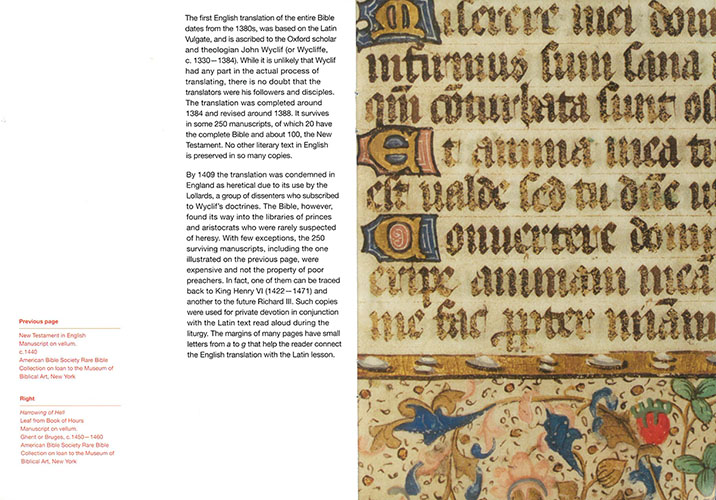 The first English translation of the entire Bible
dates from the 1380s, was based on the Latin
Vulgate, and is ascribed to the Oxford scholar
and theologian John Wyclif (or Wycliffe,
c. 1330—1384). While it is unlikely that Wyclif
had any part in the actual process of
translating, there is no doubt that the
translators were his followers and disciples.
The translation was completed around
1384 and revised around 1388. It survives
in some 250 manuscripts, of which 20 have
the complete Bible and about 100, the New
Testament. No other literary text in English
is preserved in so many copies.
By 1409 the translation was condemned in
England as heretical due to its use by the
Lollards, a group of dissenters who subscribed
to Wyclif's doctrines. The Bible, however,
found its way into the libraries of princes
and aristocrats who were rarely suspected
of heresy. With few exceptions, the 250
surviving manuscripts, including the one
illustrated on the previous page, were
expensive and not the property of poor
preachers. In fact, one of them can be traced
back to King Henry VI (1422—1471) and
another to the future Richard III. Such copies
were used for private devotion in conjunction
with the Latin text read aloud during the
liturgy. The margins of many pages have small
letters from a to g that help the reader connect
the English translation with the Latin lesson.
Previous page
New Testament in English
Manuscript on vellum.
c.1440
American Bible Society Rare Bible
Collection on loan to the Museum of
Biblical Art, New York
Right
Harrowing of Hell
Leaf from Book of Hours
Manuscript on vellum.
Ghent or Bruges, c.1450—1460
American Bible Society Rare Bible
Collection on loan to the Museum of
Biblical Art, New York
Miserere mei dom
infirmus sum sana
qm conturbata sunt os
Et anima mea tu
est valde sed tu dne
Convertere domi
eripe animam mea
me fac propter